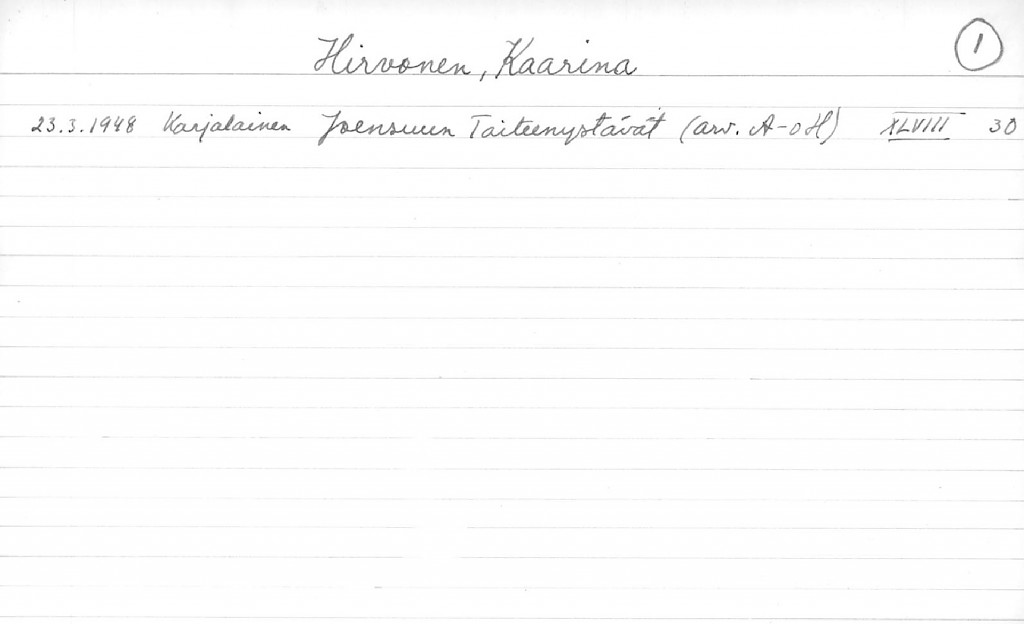 Hirvonen, Kaarina 1
23.3.1948 Karjalainen Joensuun Taiteenystävät (arv. A-o H) XLVIII 30